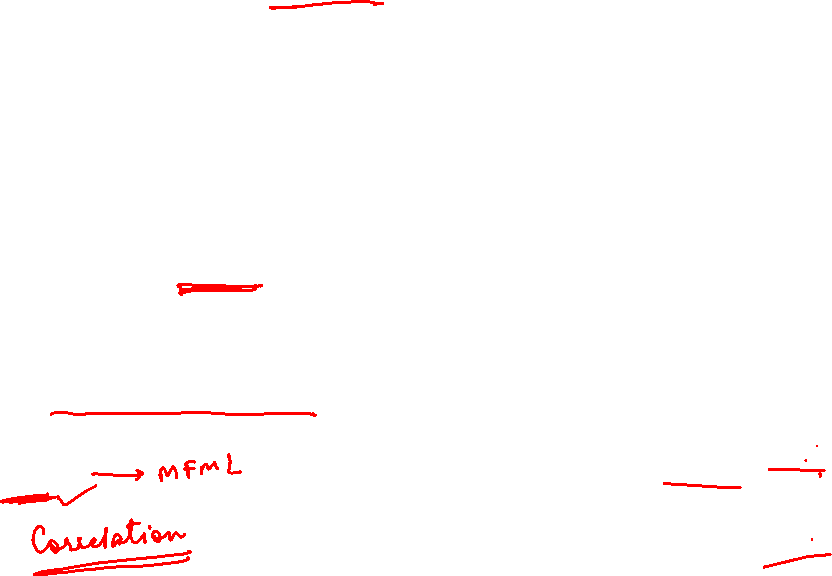 → MFML
Correlation